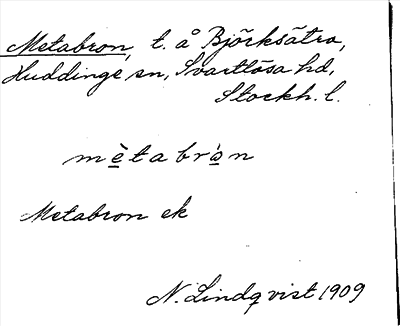 Metabron, t. å Björksätra,
Huddinge sn, Svartlösa hd,
Stockh. l.
mètabròn
Metabron ek
N. Lindqvist 1909